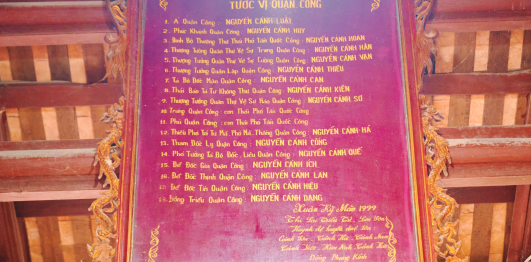 TƯỚC VỊ QUẬN CÔNG
1. A Quận Công: NGUYỄN CẢNH LUÂI
2. Phúc Khánh Quận Công: NGUYỄN CẢNH HUY
3. Binh Bộ Thượng Thư Thái Phó Tấn Quốc Công: NGUYỄN CẢNH HOAN
4. Thượng Tướng Quân Thự Vệ Sự Trung Quận Công: NGUYỄN CẢNH HÂN
5. Thượng Tướng Quân Thự Vệ Sự Cường Quận Công: NGUYỄN CẢNH VÂN
6. Thượng Tướng Quân Lập Quận Công: NGUYỄN CẢNH THIỀU
7. Tả Bộ Đốc Mân Quận Công: NGUYỄN CẢNH CAN
8. Thái Bảo Tả Tư Không Thư Quận Công: NGUYỄN CẢNH KIÊN
9. Thượng Tướng Quân Thự Vệ Sự Hào Quận Công: NGUYỄN CẢNH SỞ
10. Trung Quận Công: con Thái Phó Tấn Quốc Công
11. Phú Quận Công: con Thái Phó Tấn Quốc Công
12. Thiếu Phó Tả Tư Mã, Phò Mã, Thắng Quận Công: NGUYỄN CẢNH HÀ
13. Tham Đốc Lý Quận Công: NGUYỄN CẢNH CỐNG
14. Phó Tướng Tả Đô Đốc, Liêu Quận Công: NGUYỄN CẢNH QUẾ
15. Đề Đốc Gia Quận Công: NGUYỄN CẢNH ÍCH
16. Đề Đốc Thịnh Quận Công: NGUYỄN CẢNH LÂN
17. Đề Đốc Tấn Quận Công: NGUYỄN CẢNH HIỆU
18. Đông Triều Quận Công: NGUYỄN CẢNH ĐĂNG
Xuân Kỷ Mão 1999